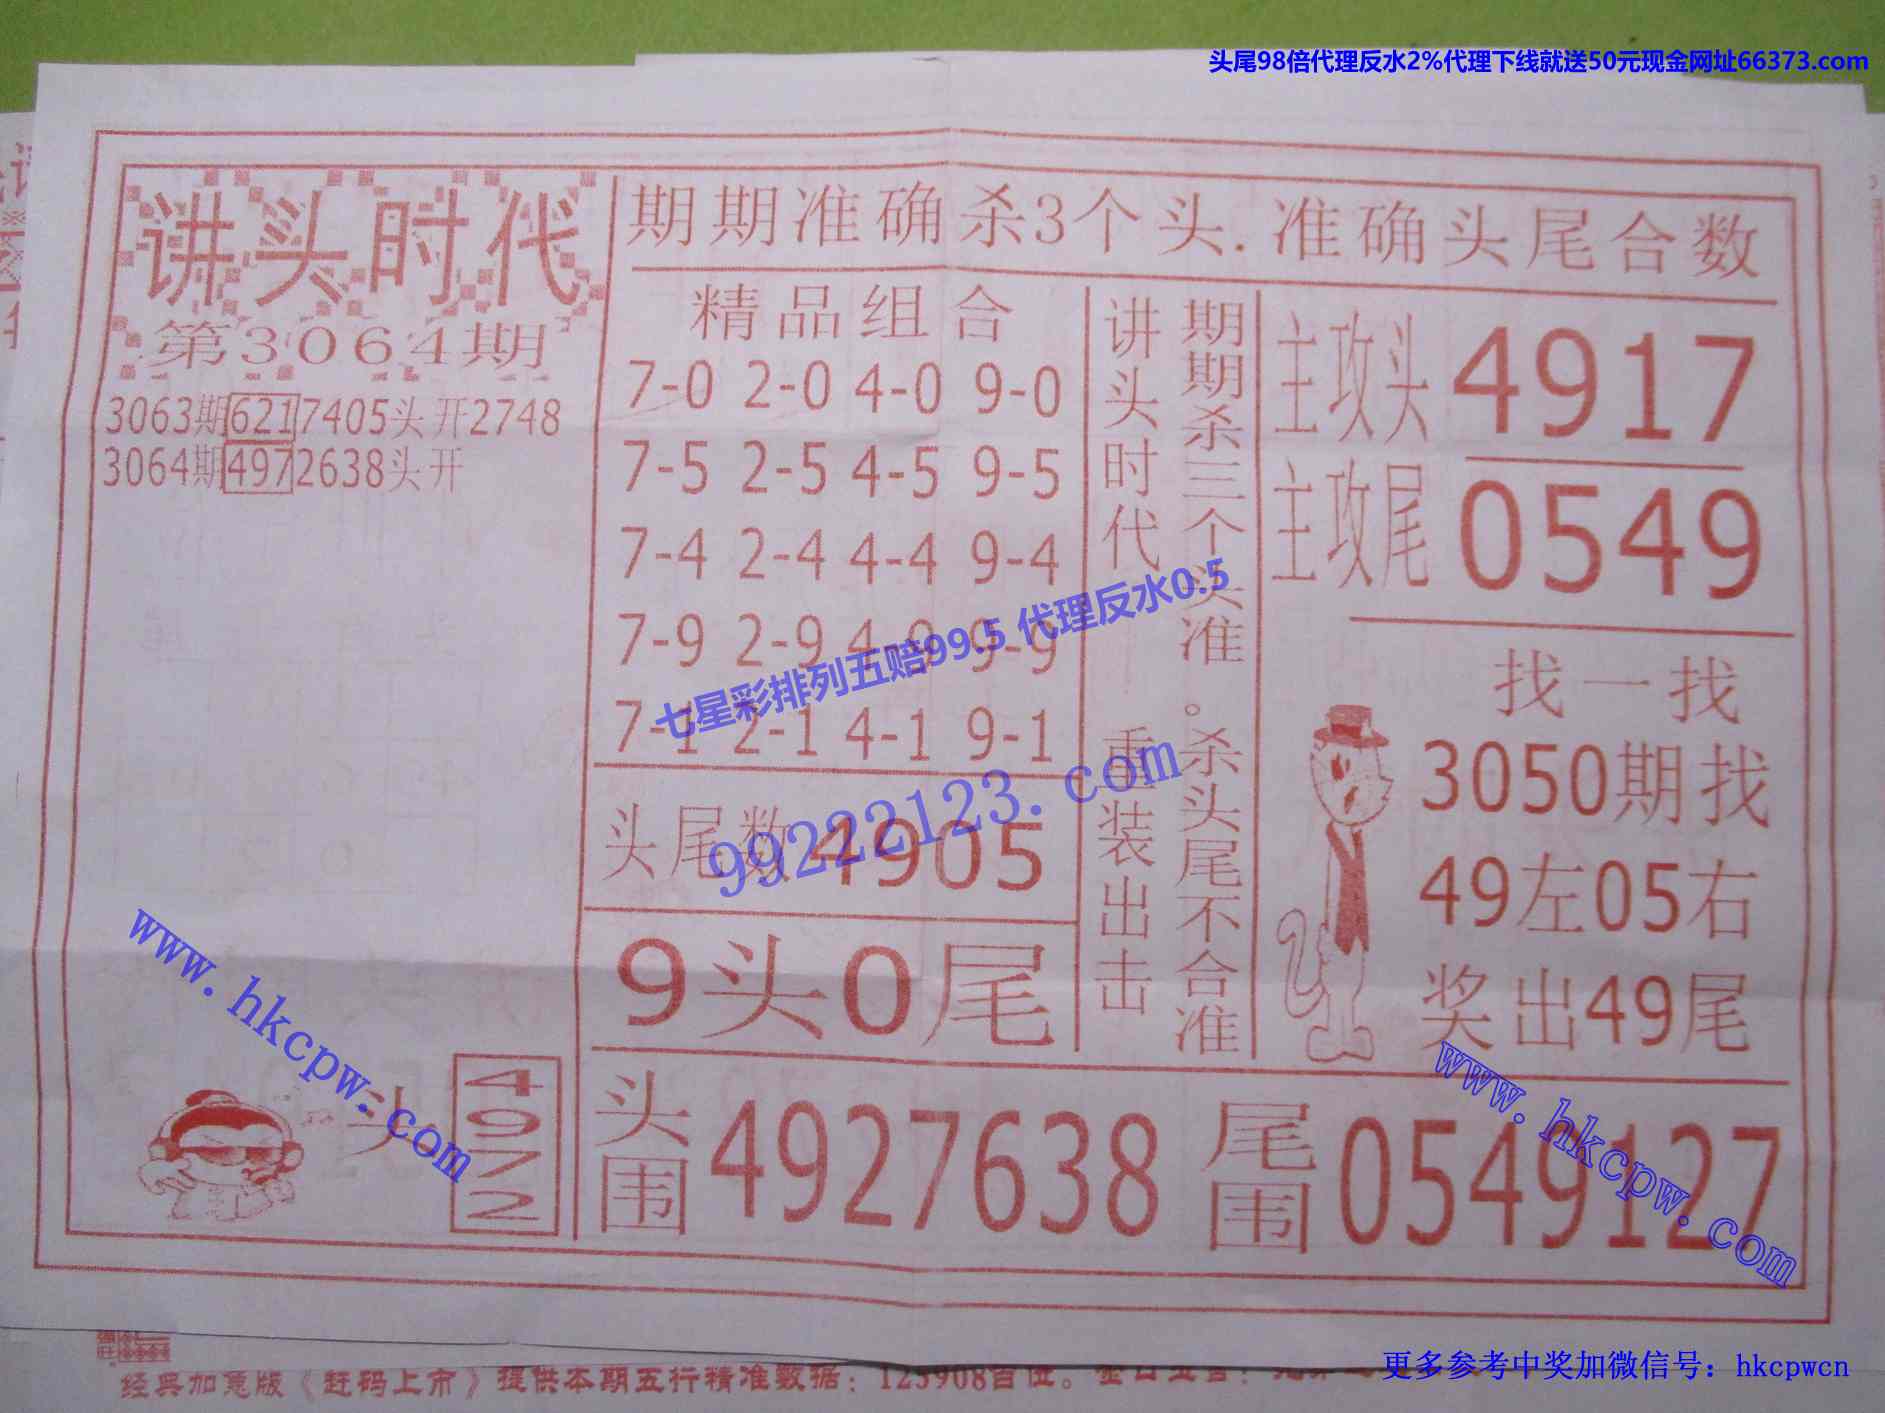 头尾98倍代理反水2%代理下线就送50元现金网址66373.com
讲头时代
第3064期
3063期6217405头开2748
3064期4972638头开
期期准确杀3个头.准确头尾合数
精品组合
7-0 2-0 4-0 9-0
7-5 2-5 4-5 9-5
7-4 2-4 4-4 9-4
7-9 2-9 4-9 9-9
7-1 2-1 4-1 9-1
头尾数4905
9头0尾
讲头时代 重装出击
期期杀三个头准。杀头尾不合准
主攻头 4917
主攻尾 0549
找一找
3050期找
49左05右
奖出49尾
七星彩排列五赔99.5 代理反水0.5
99222123.com
www.hkcpw.com
www.hkcpw.com
头 4972
头围 4927638
尾围 0549127
经典加宽版《赶码上市》提供本期五行精准数据：123908首位。
更多参考中奖加微信号：hkcpwcn